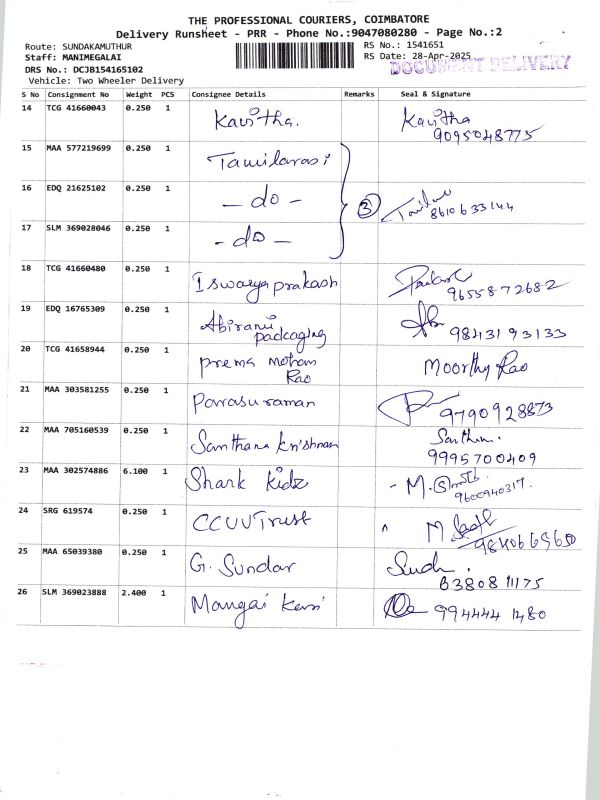 THE PROFESSIONAL COURIERS, COIMBATORE
Delivery Runsheet - PRR - Phone No.:9047080280 - Page No.:2
Route: SUNDAKAMUTHUR
RS No.: 1541651
Staff: MANIMEGALAI
RS Date: 28-Apr-2025
DOCUMENT DELIVERY
DRS No.: DCJB154165102
Vehicle: Two Wheeler Delivery
S No Consignment No Weight PCS Consignee Details Remarks Seal & Signature
14 TCG 41660043 0.250 1 Kavitha. Kavitha
9095048775
15 MAA 577219699 0.250 1 Tamilarasi
16 EDQ 21625102 0.250 1 - do - 3
8610633144
17 SLM 369028046 0.250 1 - do -
18 TCG 41660480 0.250 1 Iswarya prakash
9655872682
19 EDQ 16765309 0.250 1 Abirami
packaging 9843193133
20 TCG 41658944 0.250 1 prema mohan
Rao Moorthy Rao
21 MAA 303581255 0.250 1 Parasuraman 9790928873
22 MAA 705160539 0.250 1 Santhana krishnan
9995700409
23 MAA 302574886 6.100 1 Shark Kidz
9600940317.
24 SRG 619574 0.250 1 CCUVTrust
9840669650
25 MAA 65039380 0.250 1 G. Sundar
6380811175
26 SLM 369023888 2.400 1 Mangai 994444 1480